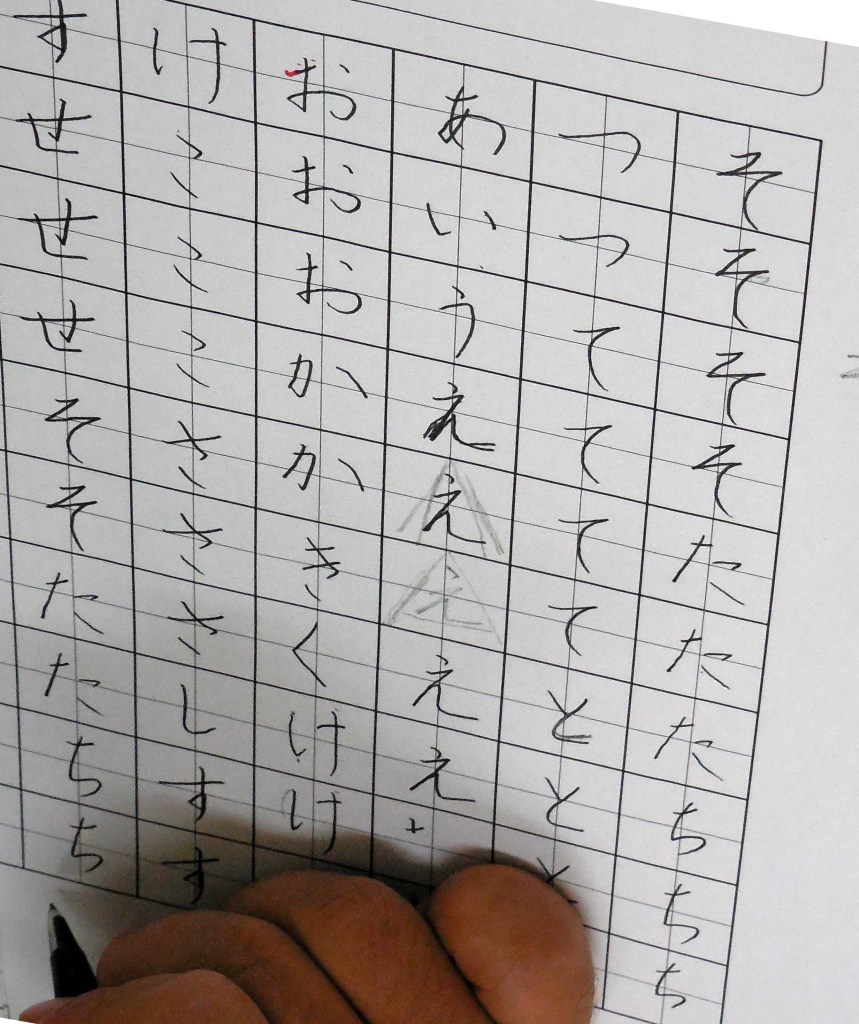 そそそそたたたちちち
つつててててとと
あいうええええええ
おおおかかきくけけ
けこここさささしすす
すせせせそそたたちち